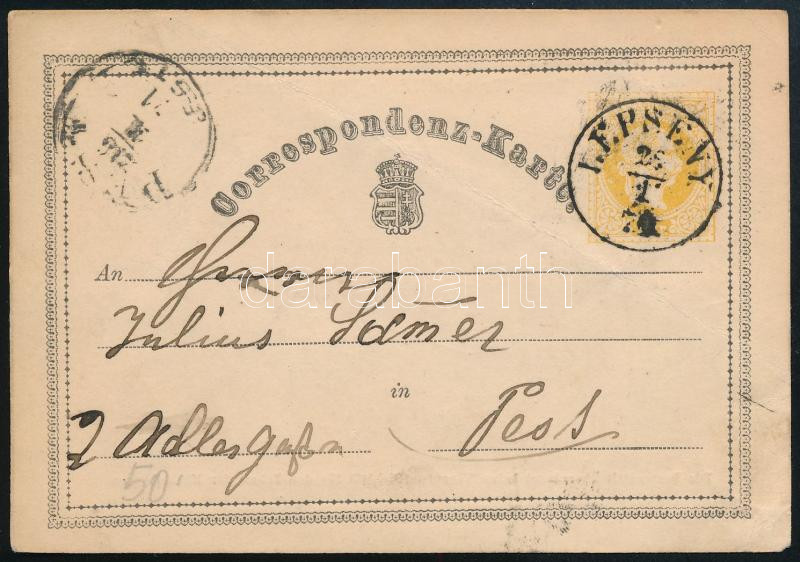 Correspondenz-Karte
LEPSENY
25
I
PEST
An
Julius Sámer
in
2 Adlergasse
Pest
50
darabanth